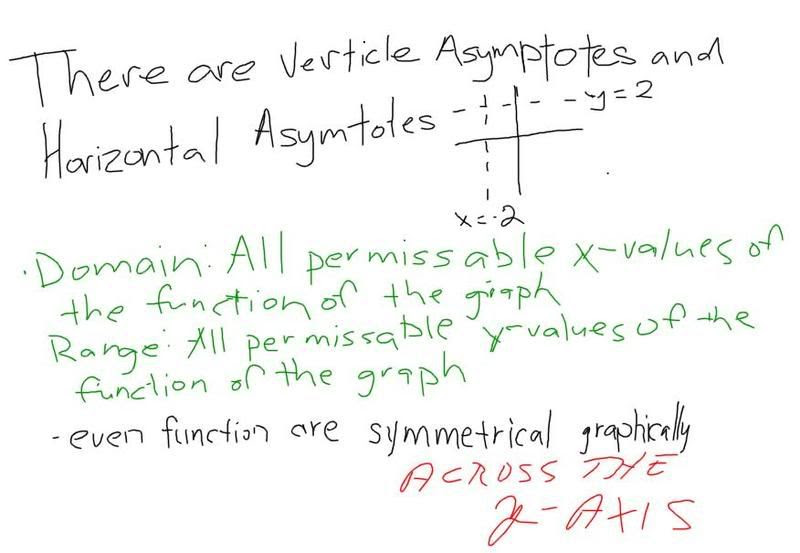 There are Verticle Asymptotes and
Horizontal Asymtotes
y=2
x=-2
·Domain: All permissable x-values of
the function of the graph
Range: All permissable y-values of the
function of the graph
-even function are symmetrical graphically
ACROSS THE
-AXIS